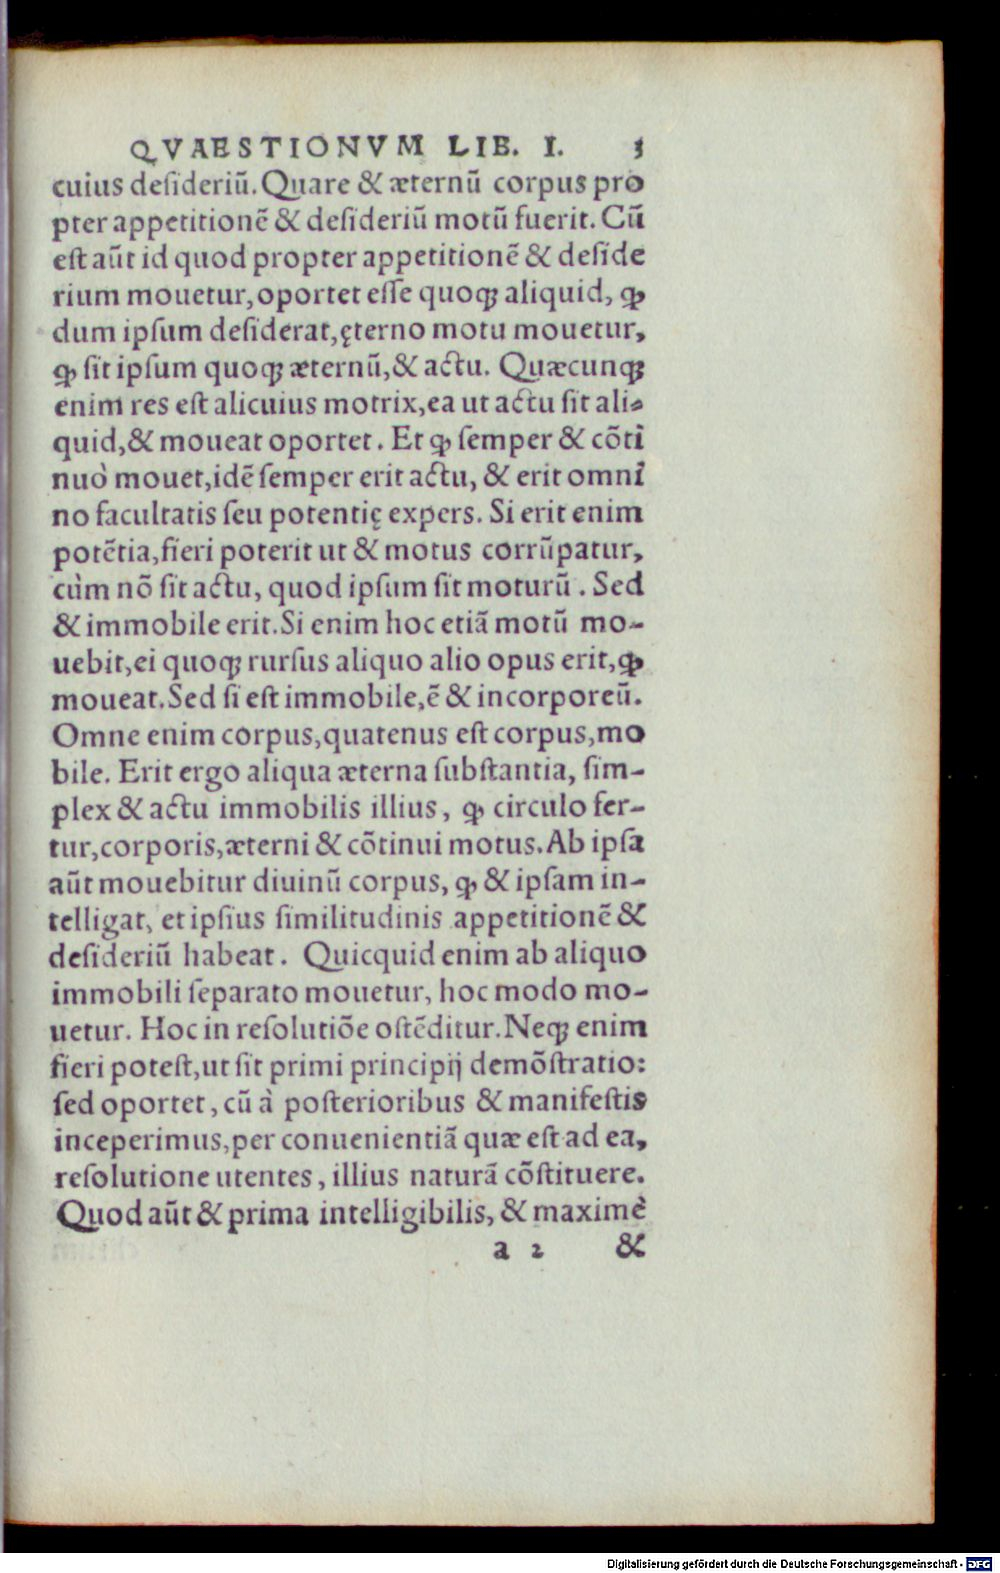 QVAESTIONVM LIB. I. 3
cuius desideriũ. Quare & æternũ corpus pro
pter appetitionẽ & desideriũ motũ fuerit. Cũ
est aũt id quod propter appetitionẽ & deside
rium mouetur, oportet esse quoqꝫ aliquid, ꝙ
dum ipsum desiderat, ęterno motu mouetur,
ꝙ sit ipsum quoqꝫ æternũ, & actu. Quæcunqꝫ
enim res est alicuius motrix, ea ut actu sit ali-
quid, & moueat oportet. Et ꝙ semper & cõti
nuò mouet, idẽ semper erit actu, & erit omni
no facultatis seu potentię expers. Si erit enim
potẽtia, fieri poterit ut & motus corrũpatur,
cùm nõ sit actu, quod ipsum sit moturũ. Sed
& immobile erit. Si enim hoc etiã motũ mo-
uebit, ei quoqꝫ rursus aliquo alio opus erit, ꝙ
moueat. Sed si est immobile, ẽ & incorporeũ.
Omne enim corpus, quatenus est corpus, mo
bile. Erit ergo aliqua æterna substantia, sim-
plex & actu immobilis illius, ꝙ circulo fer-
tur, corporis, æterni & cõtinui motus. Ab ipsa
aũt mouebitur diuinũ corpus, ꝙ & ipsam in-
telligat, et ipsius similitudinis appetitionẽ &
desideriũ habeat. Quicquid enim ab aliquo
immobili separato mouetur, hoc modo mo-
uetur. Hoc in resolutiõe ostẽditur. Neqꝫ enim
fieri potest, ut sit primi principij demõstratio:
sed oportet, cũ à posterioribus & manifestis
inceperimus, per conuenientiã quæ est ad ea,
resolutione utentes, illius naturã cõstituere.
Quod aũt & prima intelligibilis, & maximè
a 2 &
Digitalisierung gefördert durch die Deutsche Forschungsgemeinschaft - DFG